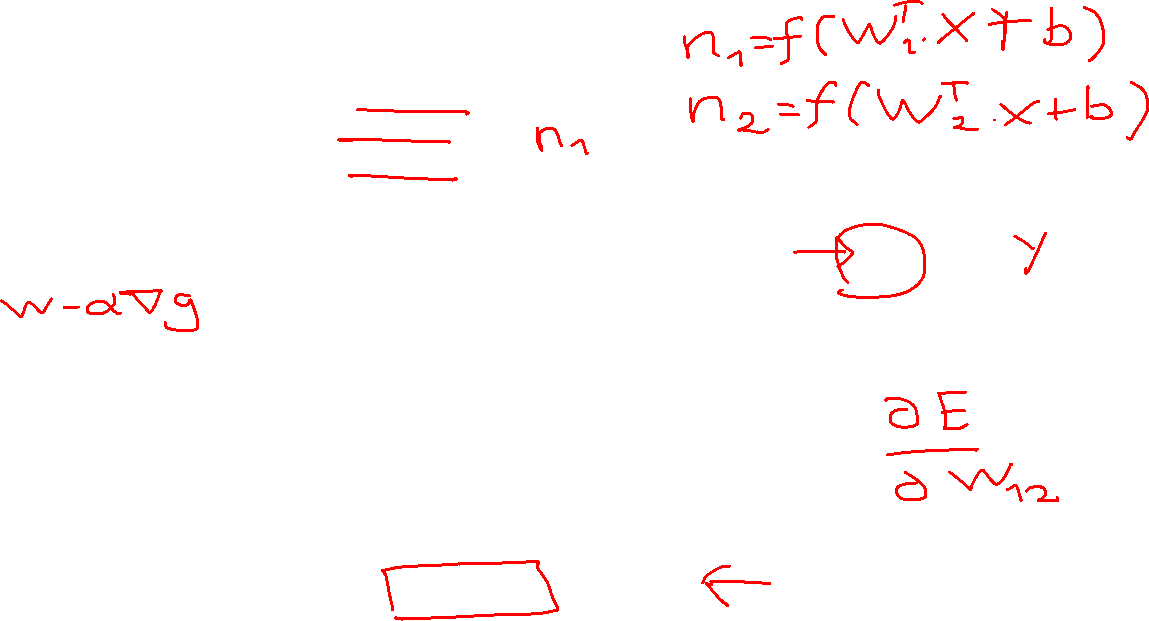 n₁=f(W₁ᵀ.x+b)
n₂=f(W₂ᵀ.x+b)
n₁
y
w-α∇g
∂E
∂W₁₂